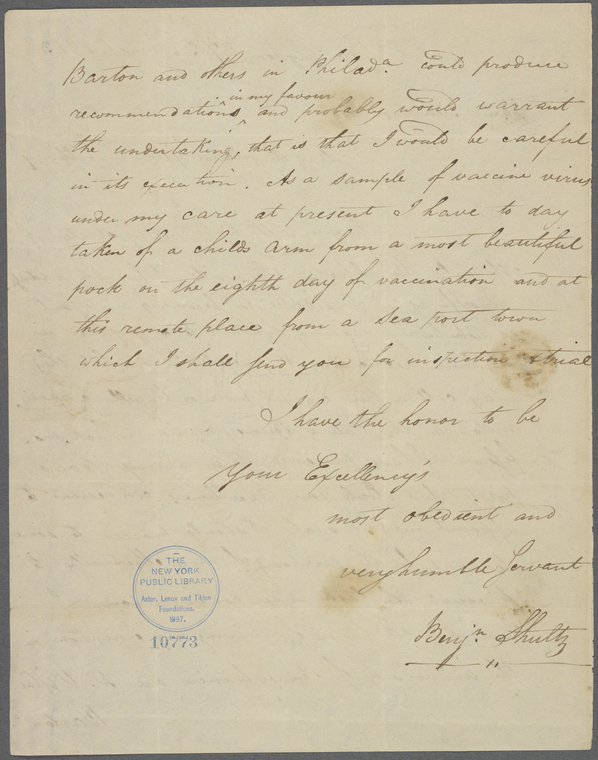 Barton and others in Philad.ª Could produce
in my favour
recommendations ^ and probably would warrant
the undertaking, that is that I would be careful
in its execution. As a sample of vaccine virus
under my care at present I have to day
taken of a childs arm from a most beautiful
pock on the eighth day of vaccination and at
this remote place from a Sea port town
which I shall send you for inspection & trial
I have the honor to be
Your Excellency's
most obedient and
very humble Servant
Benjn Shultz
THE
NEW YORK
PUBLIC LIBRARY
Astor, Lenox and Tilden
Foundations.
1897.
10773